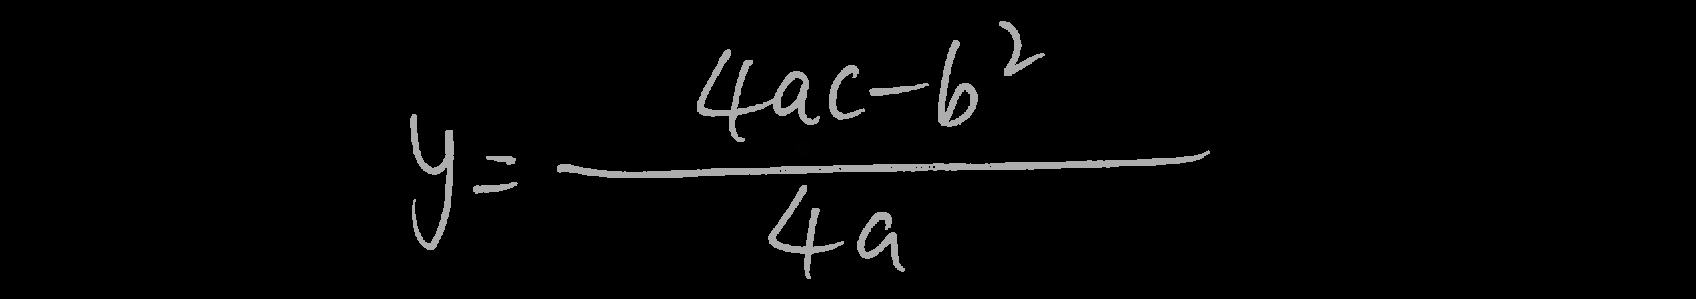 y = \frac{4ac-b^2}{4a}